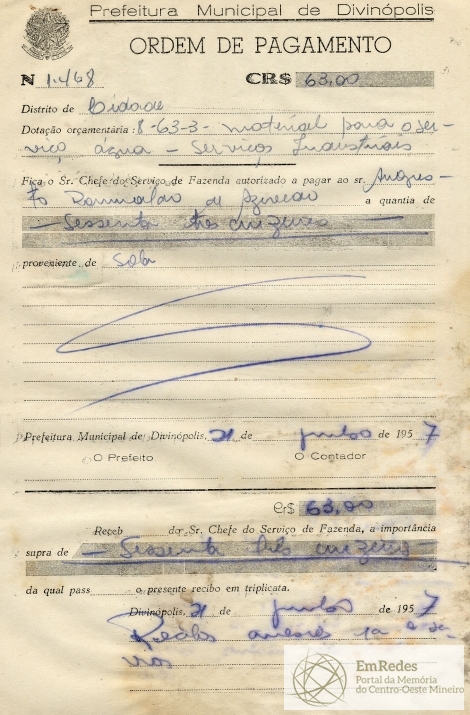 Prefeitura Municipal de Divinópolis
ORDEM DE PAGAMENTO
N 1.468 CR$ 63,00
Distrito de Cidade
Dotação orçamentária: 8-63-3- material para o ser-
viço água - Serviços Industriais
Fica o Sr. Chefe do Serviço de Fazenda autorizado a pagar ao sr. Augus-
to Romualdo de Azevedo a quantia de
- Sessenta três cruzeiros -
proveniente de
Prefeitura Municipal de Divinópolis, 21 de junho de 1957
O Prefeito O Contador
Cr$ 63,00
Receb do Sr. Chefe do Serviço de Fazenda, a importância
supra de - Sessenta três cruzeiros
da qual pass o presente recibo em triplicata.
Divinópolis, 21 de junho de 1957
EmRedes
Portal da Memória
do Centro-Oeste Mineiro